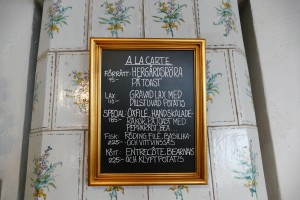 A LA CARTE
FÖRRÄTT: HERGÅRDSRÖRA
95:- PÅ TOAST
LAX: GRAVAD LAX MED
DILLSTUVAD POTATIS
SPECIAL: OXFILÉ, HANDSKALADE
165:- RÄKOR PÅ TOAST MED
PEPPARROT, BEA
FISK: RÖDING FILÉ, BASILIKA-
225:- OCH VITTVINSSÅS
KÖTT: ENTRECÔTE, BEARNAIS
225:- OCH KLYFTPOTATIS